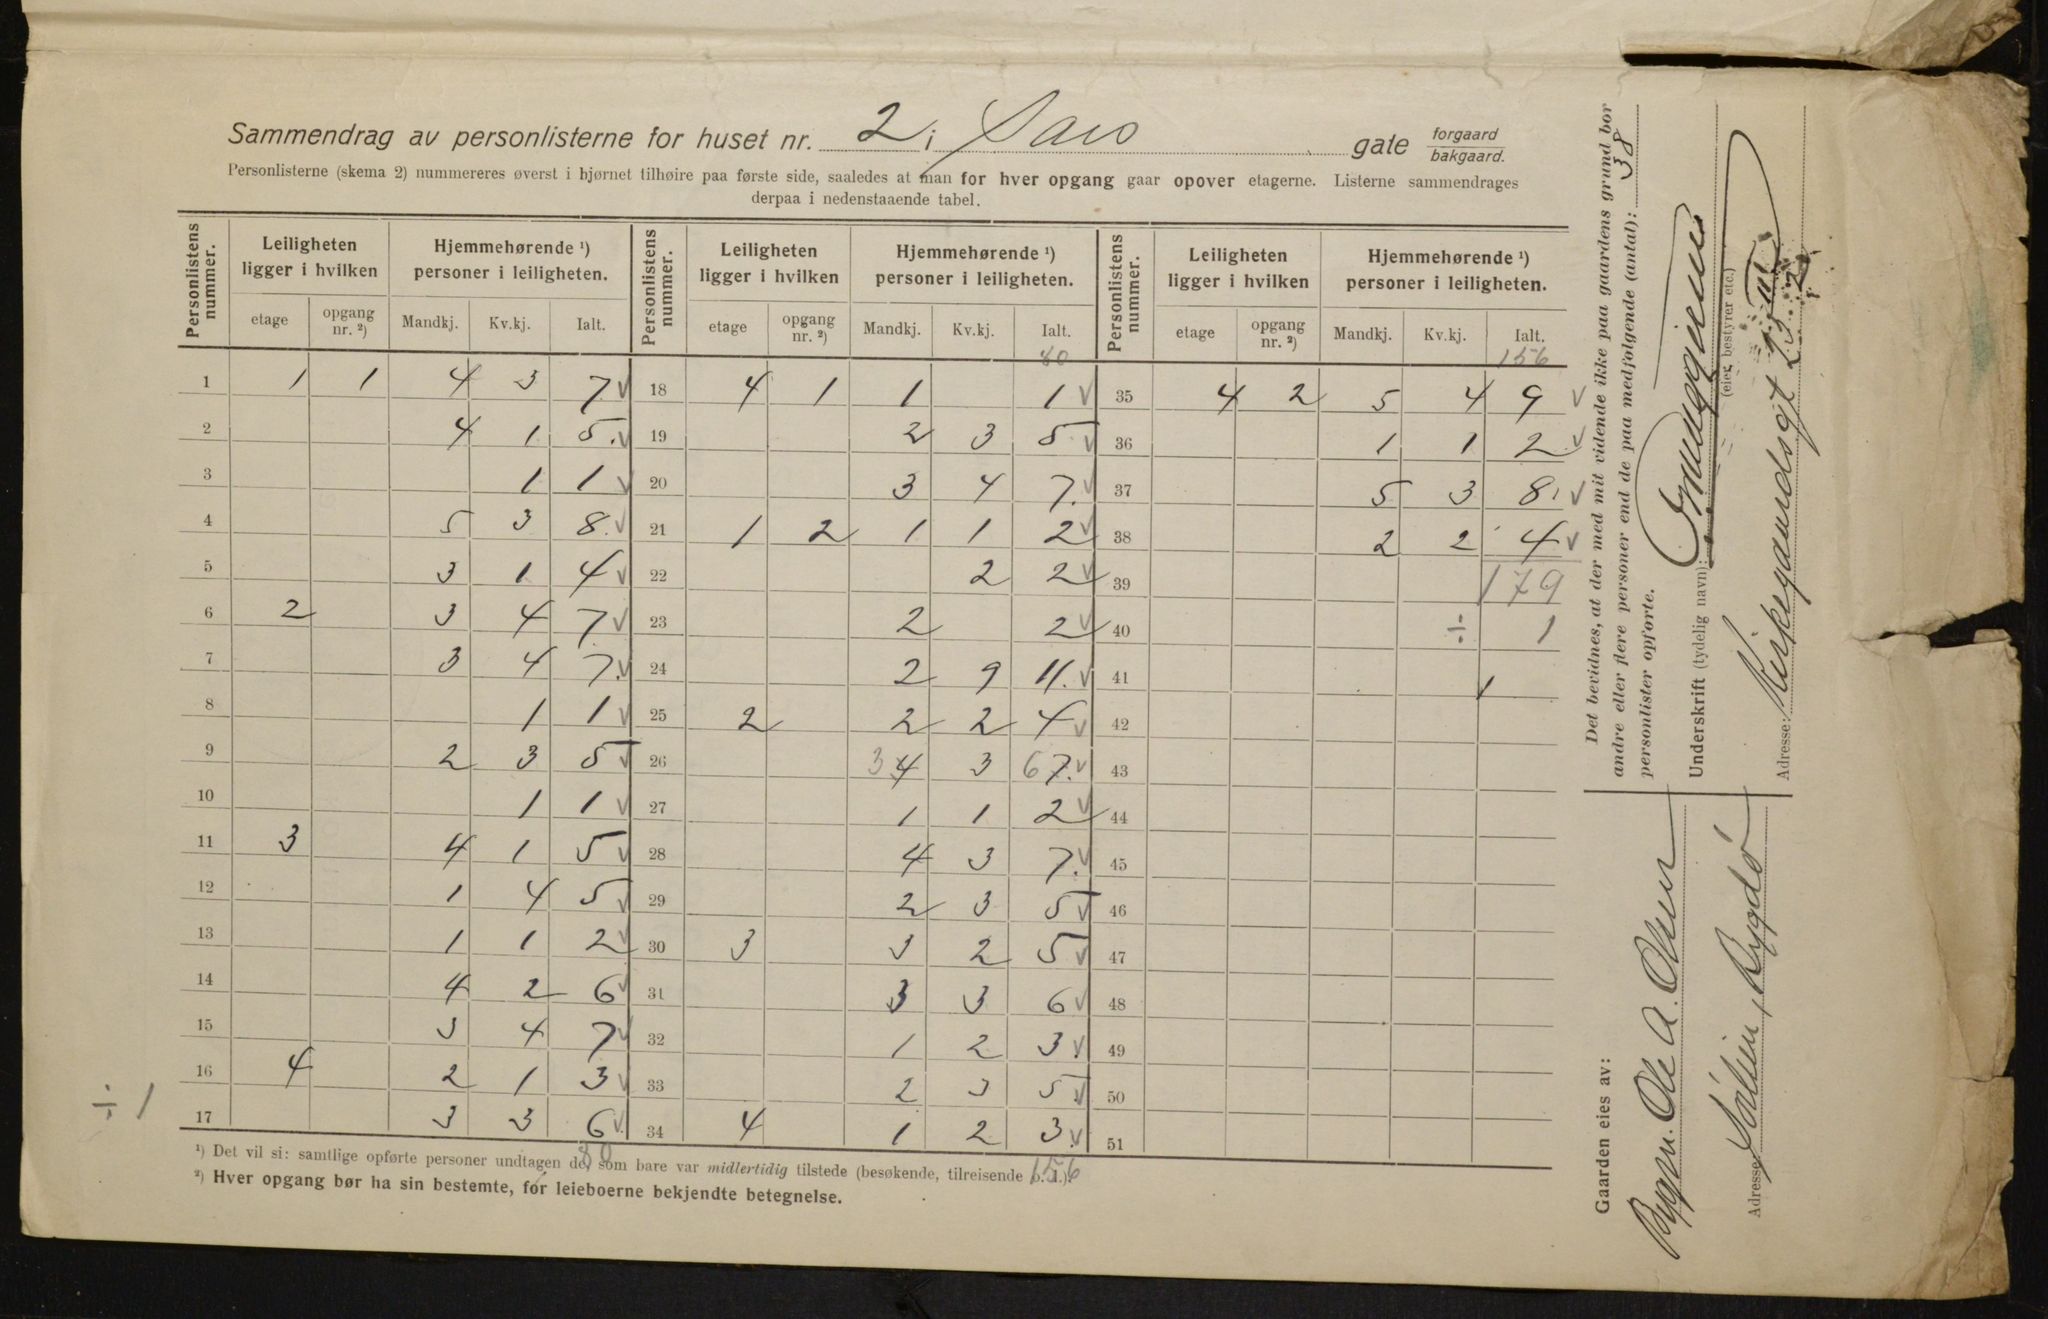 Sammendrag av personlisterne for huset nr. 2 i Sars gate forgaard bakgaard.
Personlisterne (skema 2) nummereres øverst i hjørnet tilhøire paa første side, saaledes at man for hver opgang gaar opover etagerne. Listerne sammendrages
derpaa i nedenstaaende tabel.
Personlistens nummer. Leiligheten ligger i hvilken Hjemmehørende ¹) personer i leiligheten. Personlistens nummer. Leiligheten ligger i hvilken Hjemmehørende ¹) personer i leiligheten. Personlistens nummer. Leiligheten ligger i hvilken Hjemmehørende ¹) personer i leiligheten.
etage opgang nr. ²) Mandkj. Kv.kj. Ialt. etage opgang nr. ²) Mandkj. Kv.kj. Ialt. etage opgang nr. ²) Mandkj. Kv.kj. Ialt.
80 156
1 1 1 4 3 7 v 18 4 1 1 1 v 35 4 2 5 4 9 v
2 4 1 5. v 19 2 3 5 v 36 1 1 2 v
3 1 1 v 20 3 4 7. v 37 5 3 8. v
4 5 3 8. v 21 1 2 1 1 2 v 38 2 2 4 v
5 3 1 4 v 22 2 2 v 39 179
6 2 3 4 7 v 23 2 2 v 40 ÷ 1
7 3 4 7. v 24 2 9 11. v 41 1
8 1 1 v 25 2 2 2 4 v 42
9 2 3 5 v 26 3 4 3 6 7. v 43
10 1 1 v 27 1 1 2 v 44
11 3 4 1 5 v 28 4 3 7. v 45
12 1 4 5 v 29 2 3 5 v 46
13 1 1 2 v 30 3 3 2 5 v 47
14 4 2 6 v 31 3 3 6 v 48
15 3 4 7 v 32 1 2 3. v 49
16 4 2 1 3 v 33 2 3 5 v 50
÷ 1
17 3 3 6 v 34 4 1 2 3. v 51
80 156
¹) Det vil si: samtlige opførte personer undtagen de, som bare var midlertidig tilstede (besøkende, tilreisende o. l.).
²) Hver opgang bør ha sin bestemte, for leieboerne bekjendte betegnelse.
Det bevidnes, at der med mit vidende ikke paa gaardens grund bor
andre eller flere personer end de paa medfølgende (antal): 38
personlister opførte.
Underskrift (tydelig navn):
(eier, bestyrer etc.)
Adresse: Kirkegaardsgt 23
Gaarden eies av:
Bygm. Ole A. Olsen
Adresse: Sólien, Bygdö